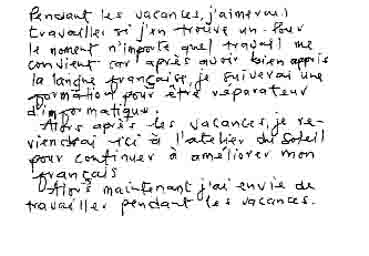 Pendant les vacances, j'aimerai
travailler si j'en trouve un. Pour
le moment n'importe quel travail me
convient car après avoir bien appris
la langue française, je suiverai une
formation pour être réparateur
d'informatique.
Alors après les vacances, je re-
viendrai ici à l'atelier du Soleil
pour continuer à améliorer mon
français
Alors maintenant j'ai envie de
travailler pendant les vacances.